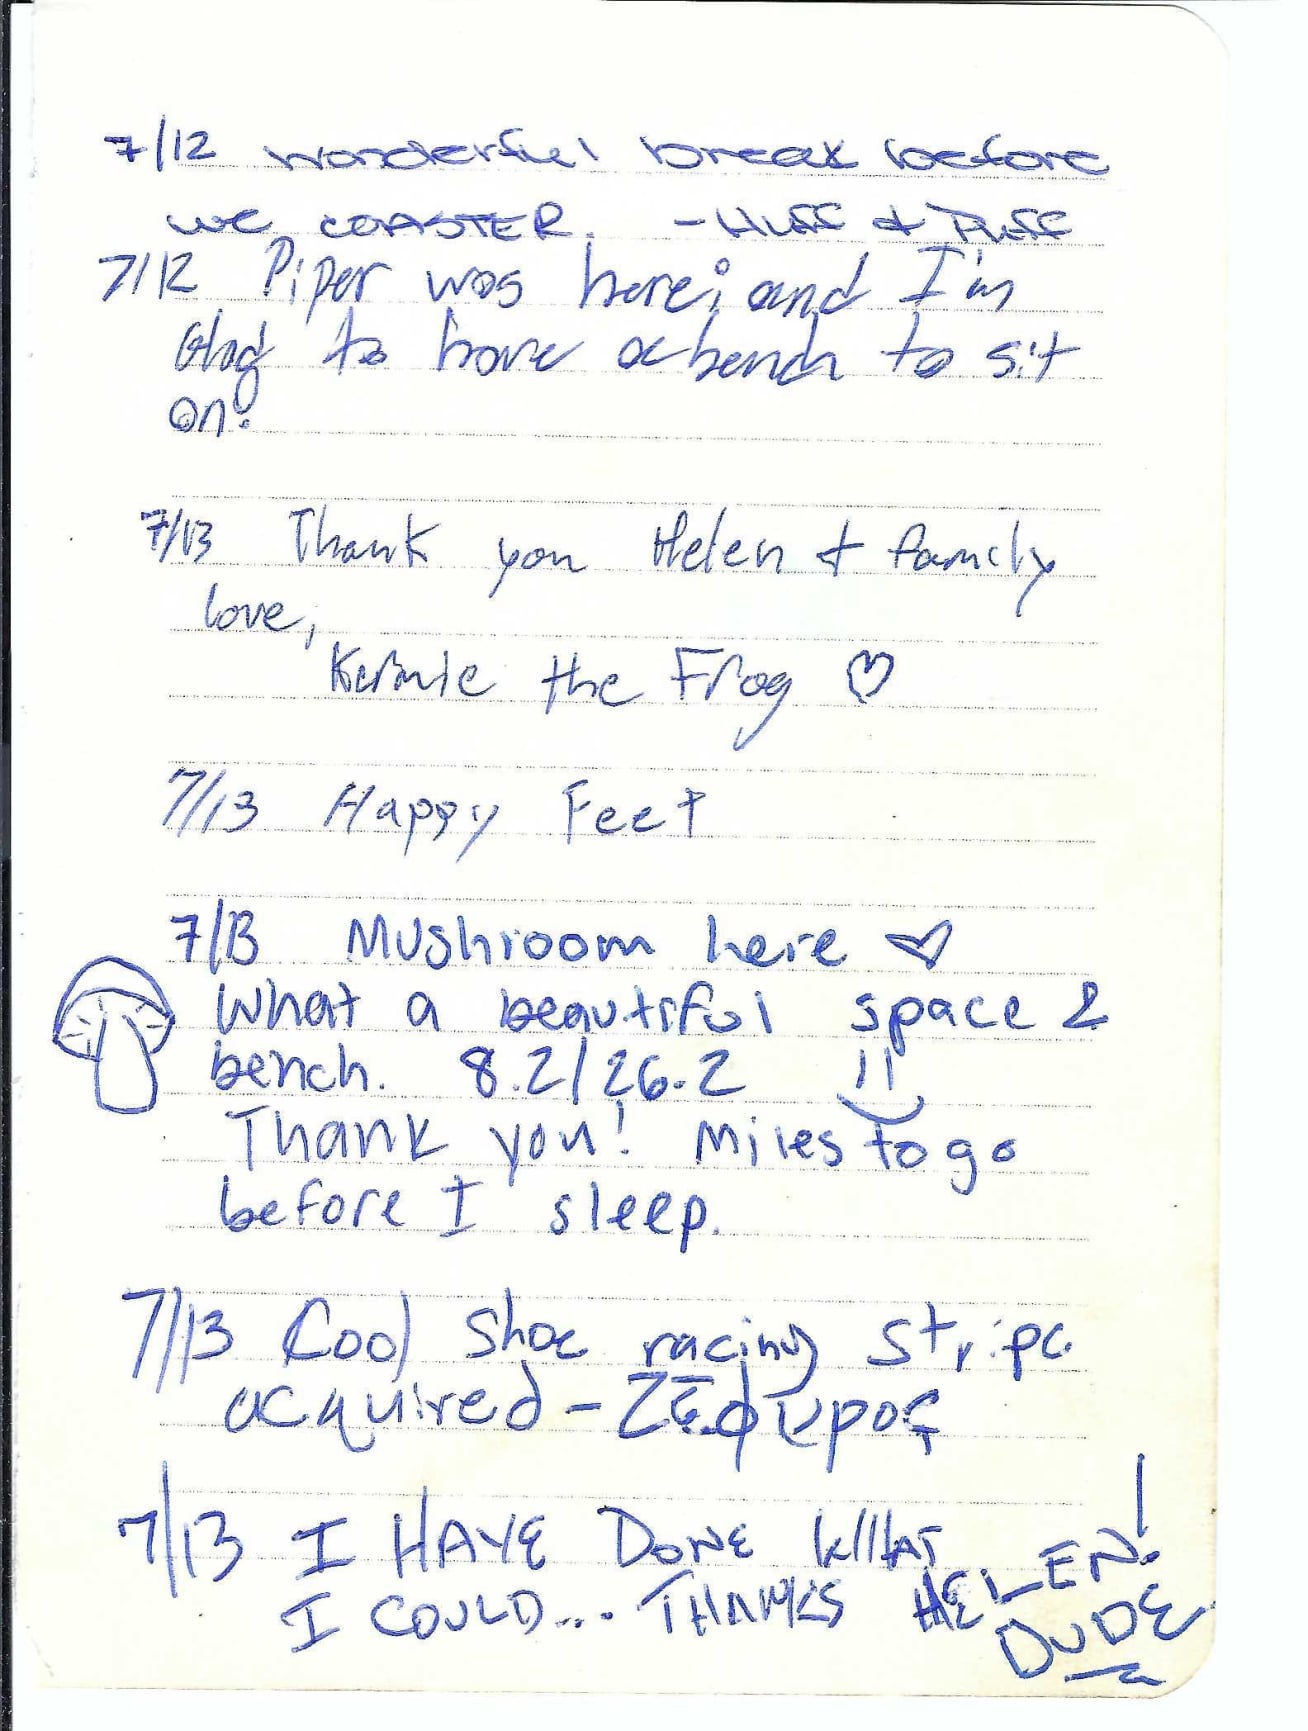 7/12 wonderful break before
we COASTER. - Huff & Puff
7/12 Piper was here; and I'm
Glad to have a bench to sit
on.
7/13 Thank you Helen & family
love,
Kermie the Frog ♡
7/13 Happy Feet
7/13 Mushroom here ♡
What a beautiful space &
bench. 8.2/26.2
Thank you! Miles to go
before I sleep.
7/13 Cool Shoe racing stripe
acquired - Ζέφυρος
7/13 I HAVE DONE WHAT
I COULD... THANKS HELEN!
DUDE